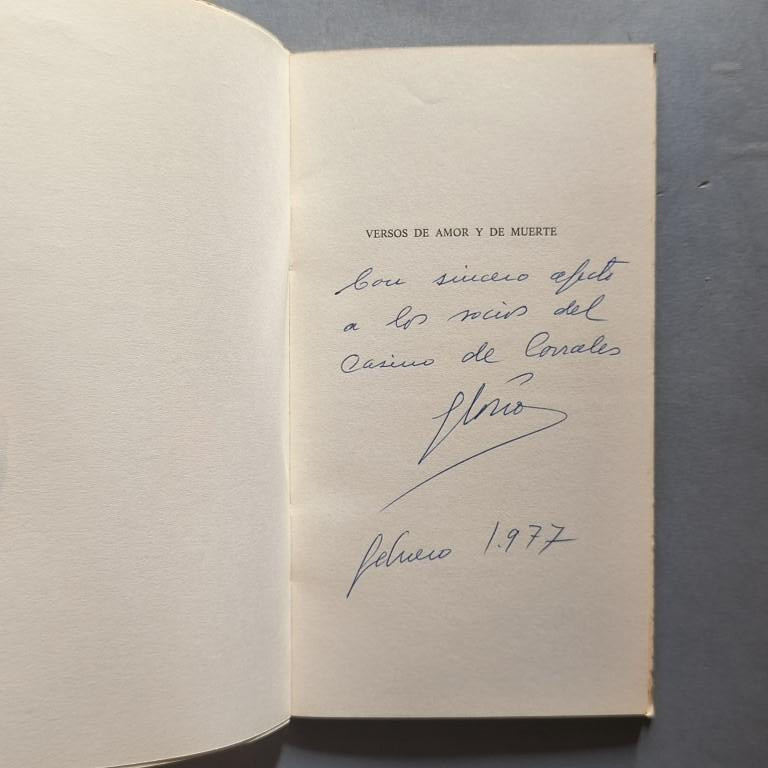 VERSOS DE AMOR Y DE MUERTE
Con sincero afecto
a los socios del
Casino de Corrales
Gloria
febrero 1.977